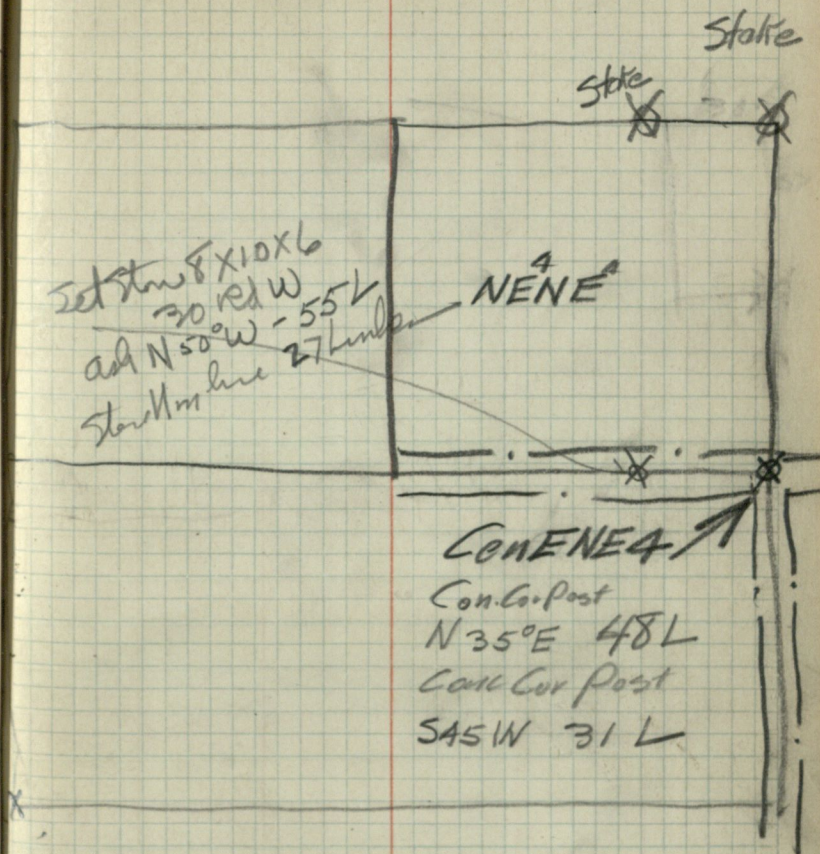 Stake
Stake
Set Stone 8X10X6
30 red W
ash N 50° W - 55 L
27 Links
NE⁴NE⁴
Cen E NE4
Con. Co. Post
N 35° E 48 L
Conc Cor Post
S45W 31 L
X